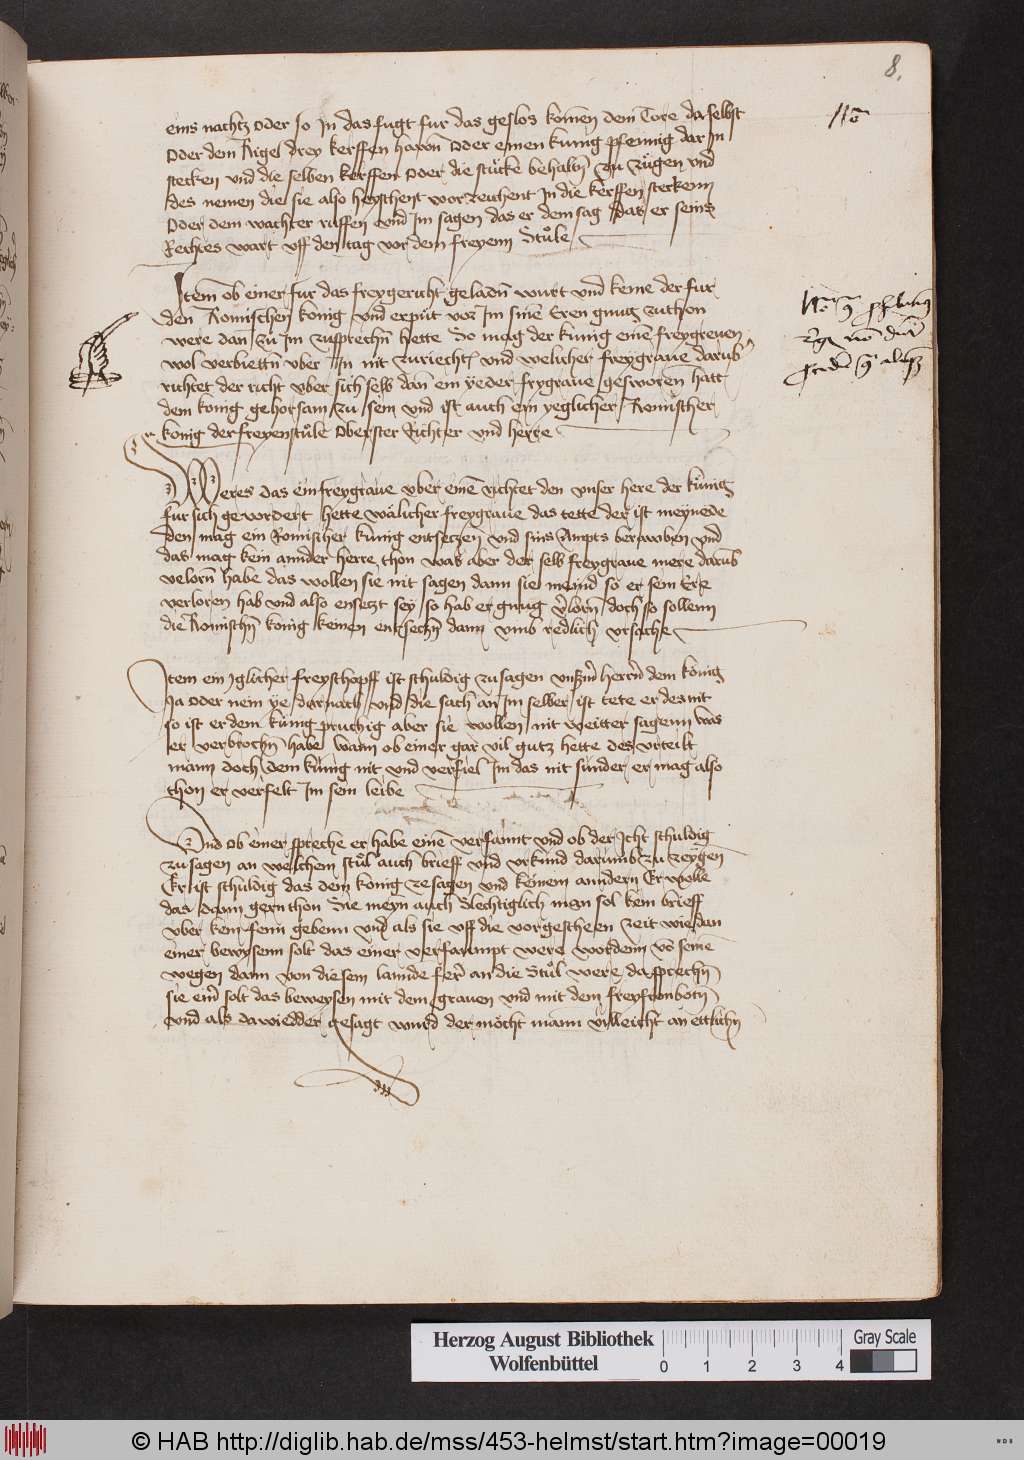 8.
eins nachtz oder so In das fugt fur das geslos komen dem Tore daselbst
oder dem Rigel drey kerffen hawn oder einen kunig pfennig dar In
stecken und die selben kerffen oder die stücke behaltn zu zügen und
des nemen die sie also heyschent vor zeichent In die kerffen steckenn
oder dem wachter ruffen und Im sagen das er dem sag das er seins
Rechtes wart uff den tag vor dem freyenn Stůle
Item ob einer fur das freygericht geladn wurt und keme der fur
den Romischen konig und erput vor Im sine Eren gnug zuthon
were dan zu Im zusprechn hette So mag der kunig eine freygreven
wol verbiettn uber In nit zuriechtn und welicher freygraue darub
richtet der richt uber sich selb dan ein yeder frygraue gesworen hatt
dem konig gehorsam zu sein und ist auch ein yeglicher Romischer
konig der freyenstůle oberster Richter und herre
Weres das ein freygraue uber eine richtet den unser here der kunig
fur sich gevordert hette wälicher freygraue das tette der ist meynede
den mag ein Romischer kunig entseczen und sins Ampts berwoben und
das mag kein annder herre thon was aber der selb freygraue mere darub
velorn habe das wollen sie nit sagen dann sie meind so er sein Ere
verloren hab und also ensetzt sey so hab er gnug vlorn doch so sollenn
die Romischn konig keinen entseczn dann umb redlich ursache
Item ein Iglicher freyschopff ist schuldig zusagen unsrm herrn dem konig
Ja oder nein ye darnach und die sach an Im selber ist tete er des nit
so ist er dem kunig pruchig aber sie wollen nit weitter sagenn was
er verbrochn habe wann ob einer gar vil gutz hette des urteilt
mann doch dem kunig nit und verfiel Im das nit sunder er mag also
thon er verfelt Im sein leibe
Und ob einer spreche er habe eine verfannt und ob der Icht schuldig
zusagen an welchem stůl auch brieff und urkund darumb zu zeygen
Er ist schuldig das dem konig zesagen und keinem anndern Er wolle
das dann gern thon Sie meyn auch slechtiglich man sol kein brieff
uber kein fem gebenn und als sie uff die vorgescheen zeit wie dan
einer bewysenn solt das einer verfaimpt were wordenn vo seine
wegen dann von diesem lannde fer an die Stůl were da sprechn
sie eim solt das beweysen mit dem grauen und mit dem freyfronbotn
und als da wiedder gesagt wurd der möcht mann villeicht an ettlichn
Herzog August Bibliothek
Wolfenbüttel
0 1 2 3 4
Gray Scale
© HAB http://diglib.hab.de/mss/453-helmst/start.htm?image=00019